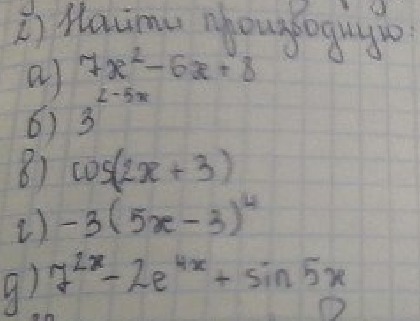 2) Найти производную:
а) 7x² - 6x + 8
б) 3^(2-5x)
в) cos(2x + 3)
г) -3(5x - 3)⁴
д) 7^(2x) - 2e^(4x) + sin 5x